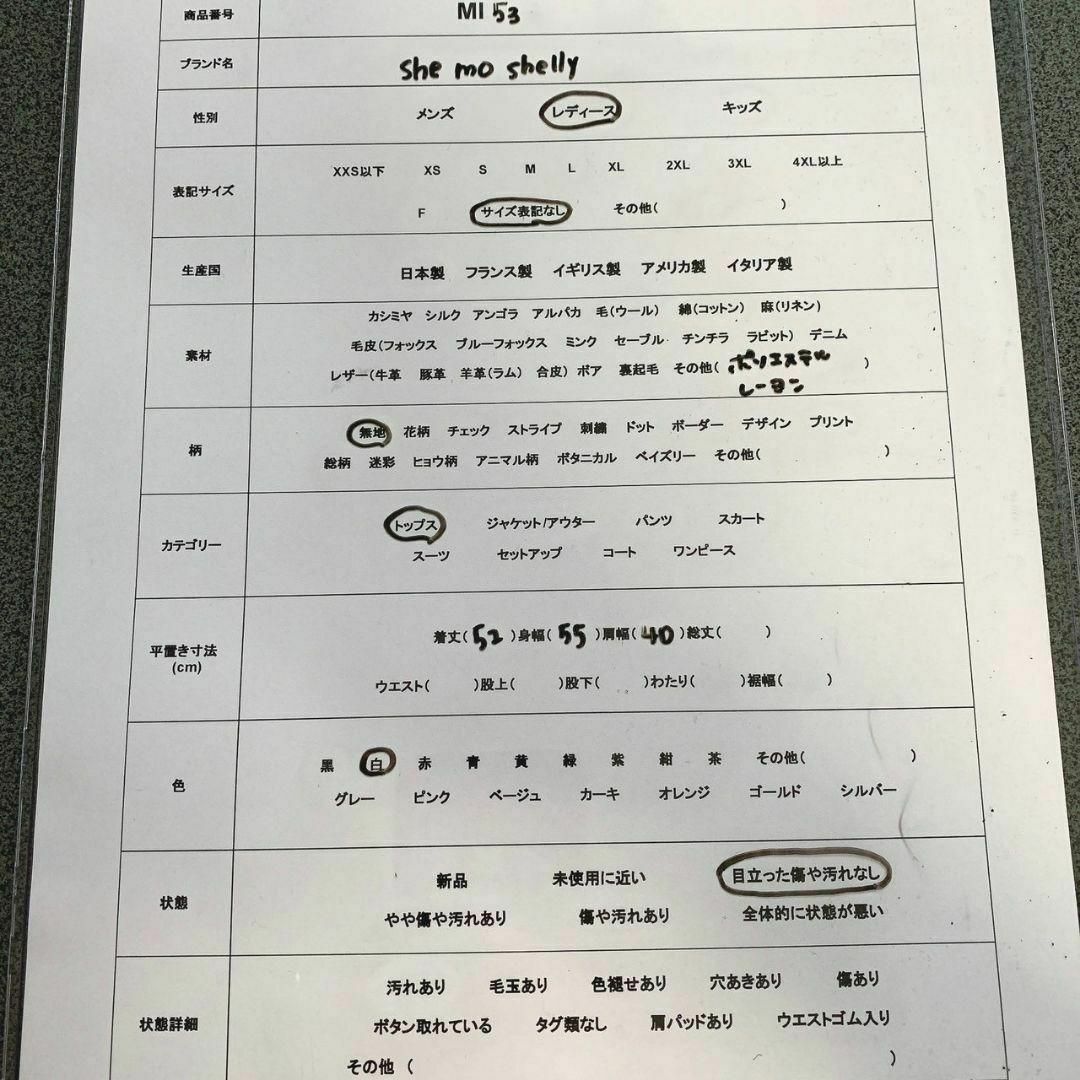 商品番号 MI 53
ブランド名 she mo shelly
性別 メンズ レディース キッズ
XXS以下 XS S M L XL 2XL 3XL 4XL以上
表記サイズ
F サイズ表記なし その他( )
生産国 日本製 フランス製 イギリス製 アメリカ製 イタリア製
カシミヤ シルク アンゴラ アルパカ 毛(ウール) 綿(コットン) 麻(リネン)
毛皮(フォックス ブルーフォックス ミンク セーブル チンチラ ラビット) デニム
素材
レザー(牛革 豚革 羊革(ラム) 合皮) ボア 裏起毛 その他( ポリエステル )
レーヨン
無地 花柄 チェック ストライプ 刺繍 ドット ボーダー デザイン プリント
柄
総柄 迷彩 ヒョウ柄 アニマル柄 ボタニカル ペイズリー その他( )
トップス ジャケット/アウター パンツ スカート
カテゴリー
スーツ セットアップ コート ワンピース
着丈( 52 )身幅( 55 )肩幅( 40 )総丈( )
平置き寸法
(cm)
ウエスト( )股上( )股下( )わたり( )裾幅( )
黒 白 赤 青 黄 緑 紫 紺 茶 その他( )
色
グレー ピンク ベージュ カーキ オレンジ ゴールド シルバー
新品 未使用に近い 目立った傷や汚れなし
状態
やや傷や汚れあり 傷や汚れあり 全体的に状態が悪い
汚れあり 毛玉あり 色褪せあり 穴あきあり 傷あり
状態詳細 ボタン取れている タグ類なし 肩パッドあり ウエストゴム入り
その他 ( )